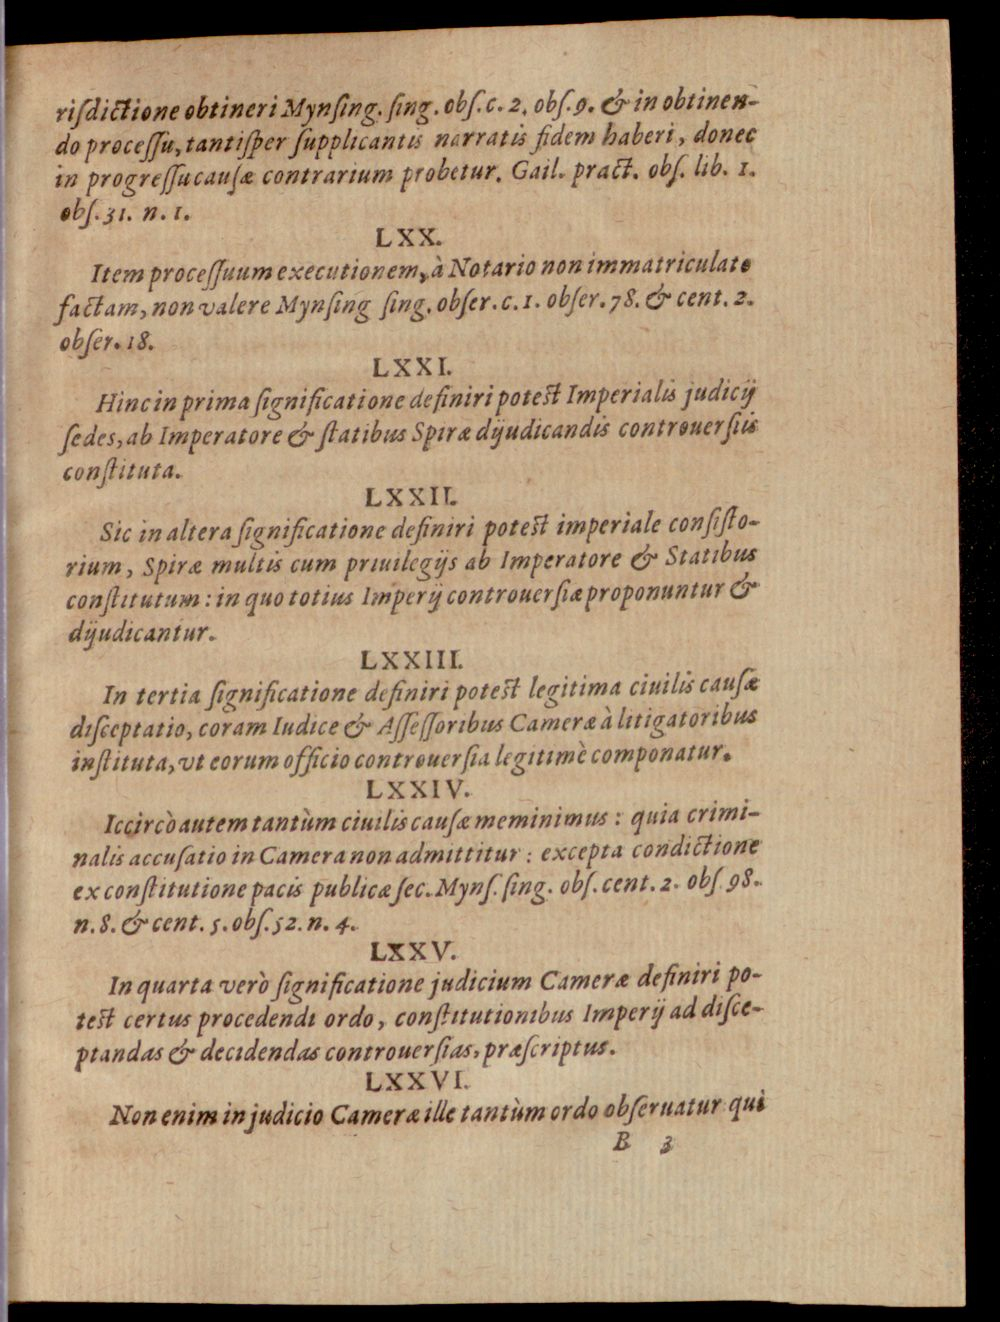 riſdictione obtineri Mynſing. ſing. obſ. c. 2. obſ. 9. & in obtinen-
do proceſſu, tantiſper ſupplicantis narratis fidem haberi, donec
in progreſſu cauſæ contrarium probetur. Gail. pract. obſ. lib. 1.
obſ. 31. n. 1.
LXX.
Item proceſſuum executionem, à Notario non immatriculato
factam, non valere Mynſing ſing. obſer. c. 1. obſer. 78. & cent. 2.
obſer. 18.
LXXI.
Hinc in prima ſignificatione definiri poteſt Imperialis judicij
ſedes, ab Imperatore & ſtatibus Spiræ dijudicandis controuerſiis
conſtituta.
LXXII.
Sic in altera ſignificatione definiri poteſt imperiale conſiſto-
rium, Spiræ multis cum priuilegijs ab Imperatore & Statibus
conſtitutum: in quo totius Imperij controuerſiæ proponuntur &
dijudicantur.
LXXIII.
In tertia ſignificatione definiri poteſt legitima ciuilis cauſæ
diſceptatio, coram Iudice & Aſſeſſoribus Cameræ à litigatoribus
inſtituta, vt eorum officio controuerſia legitimè componatur.
LXXIV.
Iccircò autem tantùm ciuilis cauſæ meminimus: quia crimi-
nalis accuſatio in Camera non admittitur: excepta condictione
ex conſtitutione pacis publicæ ſec. Mynſ. ſing. obſ. cent. 2. obſ 98.
n. 8. & cent. 5. obſ. 52. n. 4.
LXXV.
In quarta verò ſignificatione judicium Cameræ definiri po-
teſt certus procedendi ordo, conſtitutionibus Imperij ad diſce-
ptandas & decidendas controuerſias, præſcriptus.
LXXVI.
Non enim in judicio Cameræ ille tantùm ordo obſeruatur qui
B 3